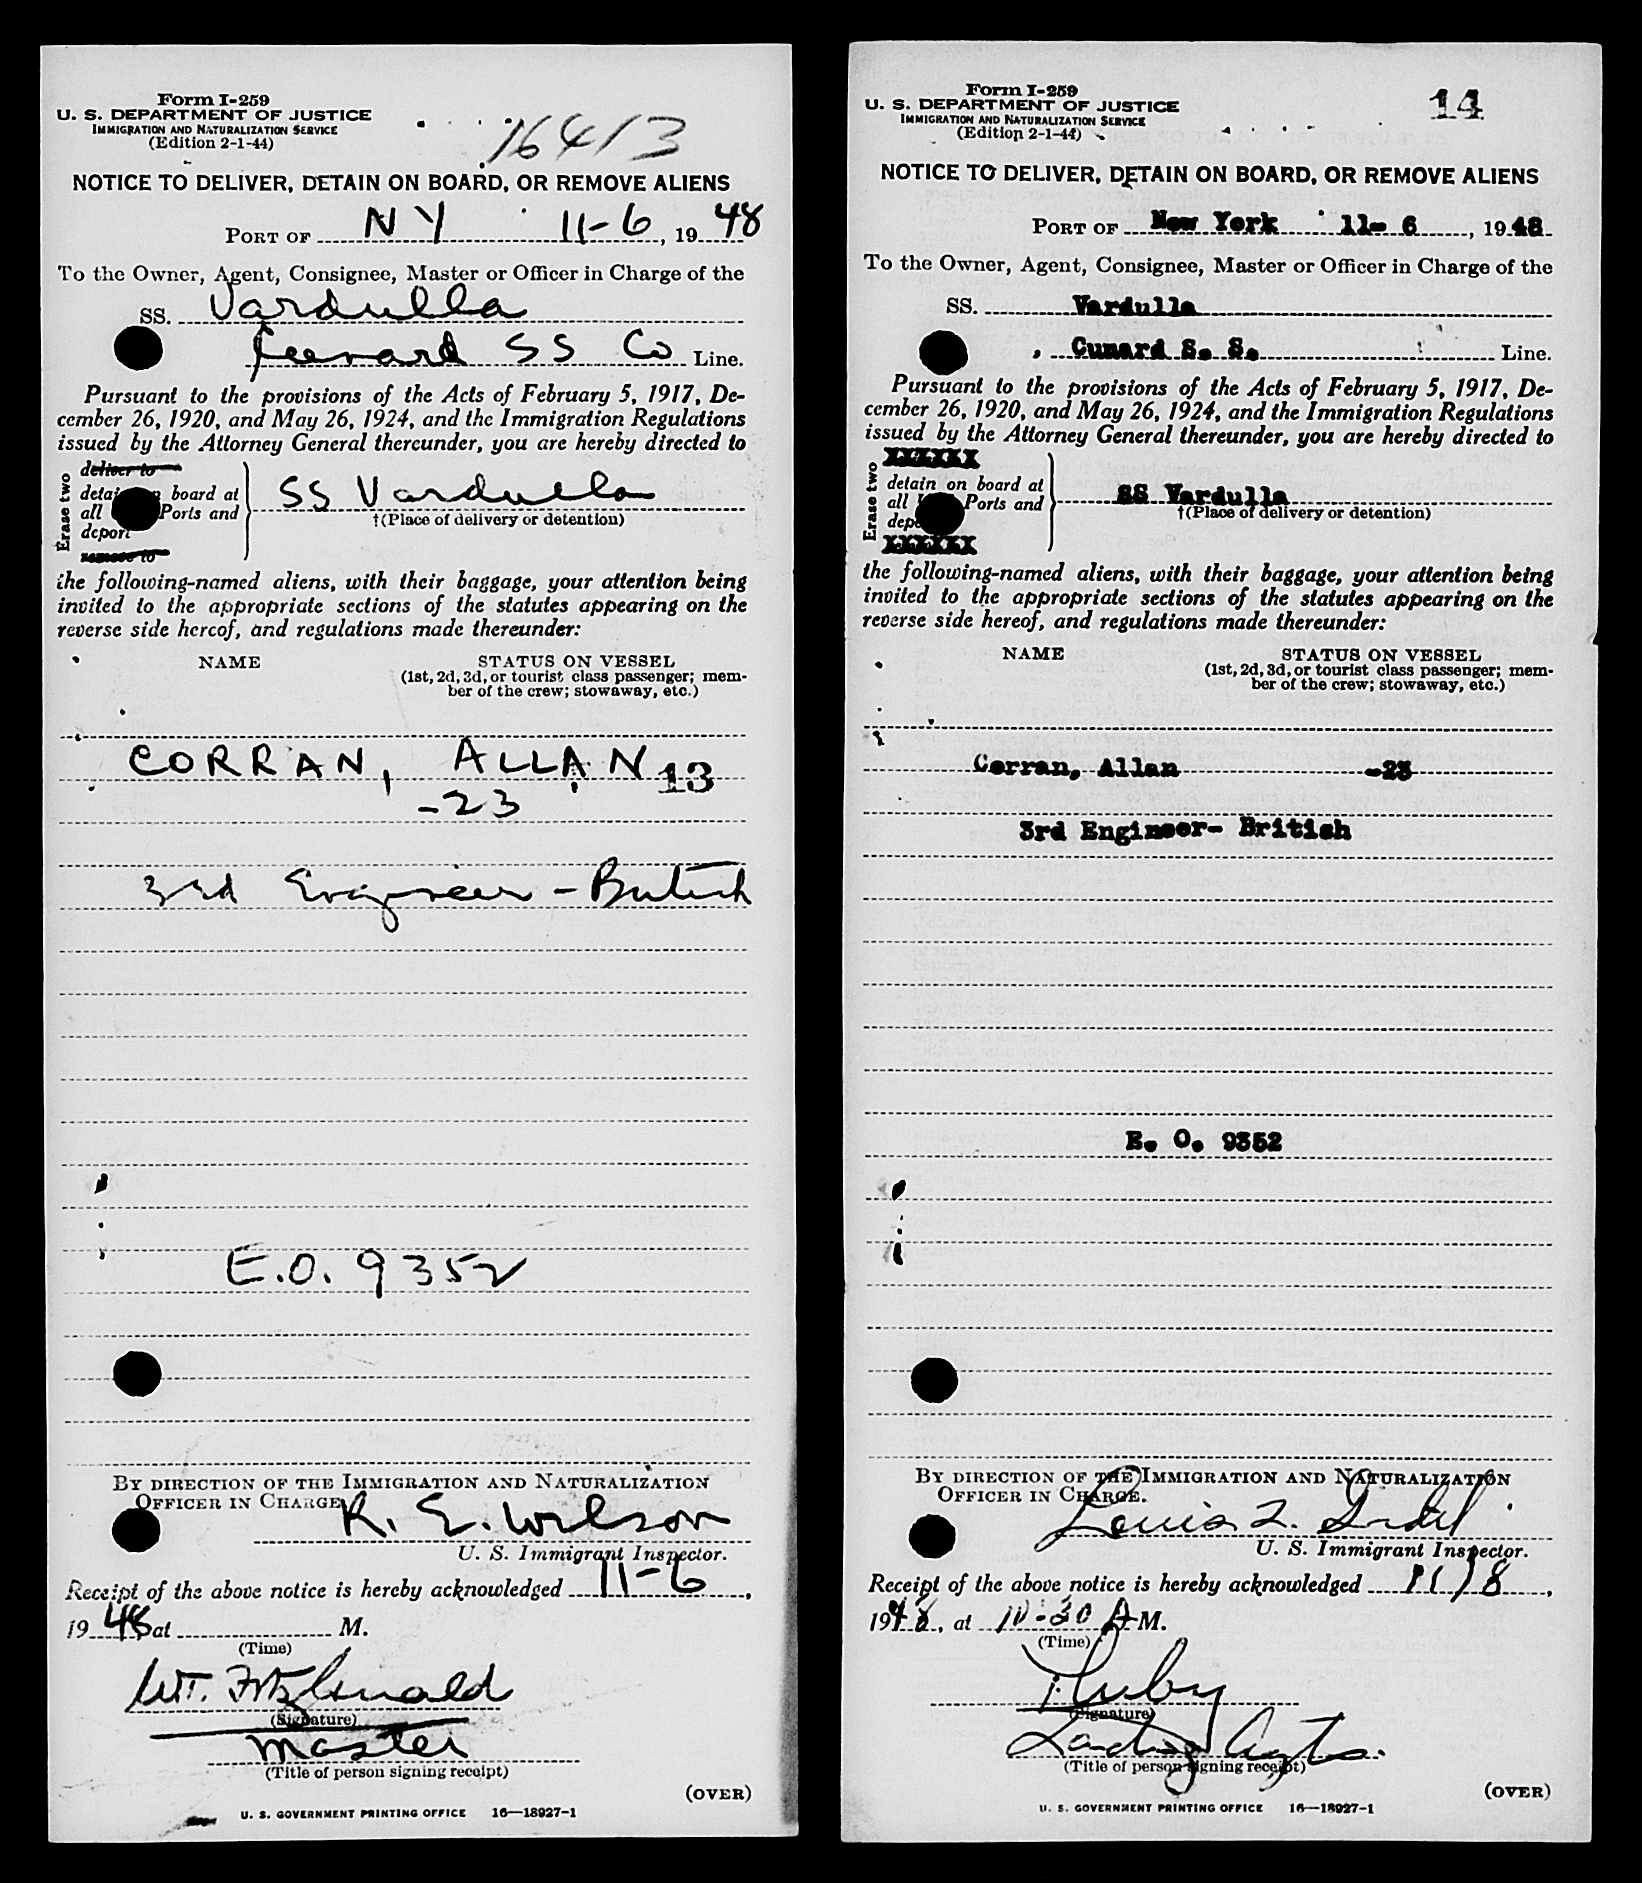 Form I-259
U. S. DEPARTMENT OF JUSTICE
IMMIGRATION AND NATURALIZATION SERVICE
(Edition 2-1-44)
16413
NOTICE TO DELIVER, DETAIN ON BOARD, OR REMOVE ALIENS
PORT OF NY 11-6, 1948
To the Owner, Agent, Consignee, Master or Officer in Charge of the
SS. Vardulla
Cunard SS Co Line.
Pursuant to the provisions of the Acts of February 5, 1917, De-
cember 26, 1920, and May 26, 1924, and the Immigration Regulations
issued by the Attorney General thereunder, you are hereby directed to
Erase two
deliver to
detain board at
all Ports and
deport
remove to
SS Vardulla
†(Place of delivery or detention)
the following-named aliens, with their baggage, your attention being
invited to the appropriate sections of the statutes appearing on the
reverse side hereof, and regulations made thereunder:
NAME STATUS ON VESSEL
(1st, 2d, 3d, or tourist class passenger; mem-
ber of the crew; stowaway, etc.)
CORRAN, ALLAN 13
-23
3rd Engineer - British
E.O. 9352
BY DIRECTION OF THE IMMIGRATION AND NATURALIZATION
OFFICER IN CHARGE
R. E. Wilson
U. S. Immigrant Inspector.
Receipt of the above notice is hereby acknowledged 11-6,
1948 at M.
(Time)
WT. Fitzgerald
(Signature)
Master
(Title of person signing receipt)
(OVER)
U. S. GOVERNMENT PRINTING OFFICE 16—18927-1
Form I-259
U. S. DEPARTMENT OF JUSTICE
IMMIGRATION AND NATURALIZATION SERVICE
(Edition 2-1-44)
14
NOTICE TO DELIVER, DETAIN ON BOARD, OR REMOVE ALIENS
PORT OF New York 11- 6, 1948
To the Owner, Agent, Consignee, Master or Officer in Charge of the
SS. Vardulla
, Cunard S. S. Line.
Pursuant to the provisions of the Acts of February 5, 1917, De-
cember 26, 1920, and May 26, 1924, and the Immigration Regulations
issued by the Attorney General thereunder, you are hereby directed to
Erase two
XXXXXX
detain on board at
all Ports and
XXXXXX
SS Vardulla
†(Place of delivery or detention)
the following-named aliens, with their baggage, your attention being
invited to the appropriate sections of the statutes appearing on the
reverse side hereof, and regulations made thereunder:
NAME STATUS ON VESSEL
(1st, 2d, 3d, or tourist class passenger; mem-
ber of the crew; stowaway, etc.)
Corran, Allan -23
3rd Engineer- British
E. O. 9352
BY DIRECTION OF THE IMMIGRATION AND NATURALIZATION
OFFICER IN CHARGE.
Louis
U. S. Immigrant Inspector.
Receipt of the above notice is hereby acknowledged 11/8,
1948, at 10-30 A M.
(Time)
(Signature)
(Title of person signing receipt)
(OVER)
U. S. GOVERNMENT PRINTING OFFICE 16—18927-1